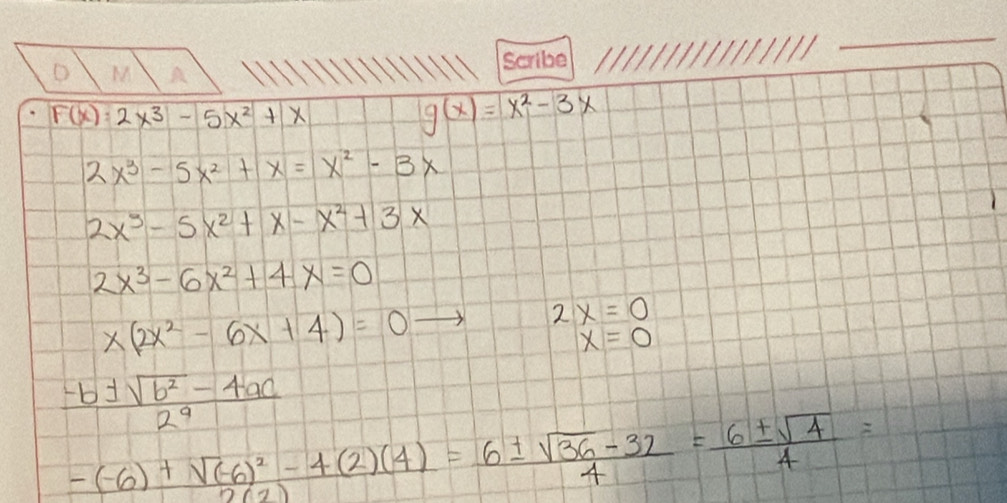 D M A Scribe
· F(x): 2x³ - 5x² + x g(x) = x² - 3x
2x³ - 5x² + x = x² - 3x
2x³ - 5x² + x - x² + 3x
2x³ - 6x² + 4x = 0
x(2x² - 6x + 4) = 0 → 2x = 0
x = 0
-b ± √b² - 4ac / 2a
-(-6) + √(-6)² - 4(2)(4) / 2(2) = 6 ± √36 - 32 / 4 = 6 ± √4 / 4 =